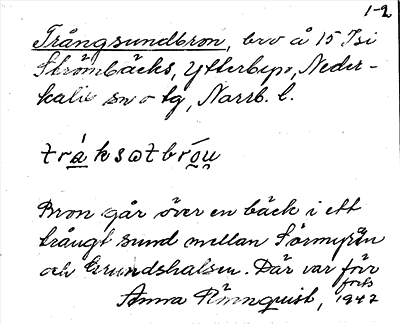 1-2
Trångsundbron, bro å 15 Isi
Strömbäcks, Ytterbyn, Neder-
kalix sn o tg, Norrb. l.
Bron går över en bäck i ett
trångt sund mellan Sörmyrän
och Grundshalsen. Där var förr
forts
Anna Rönnquist, 1942